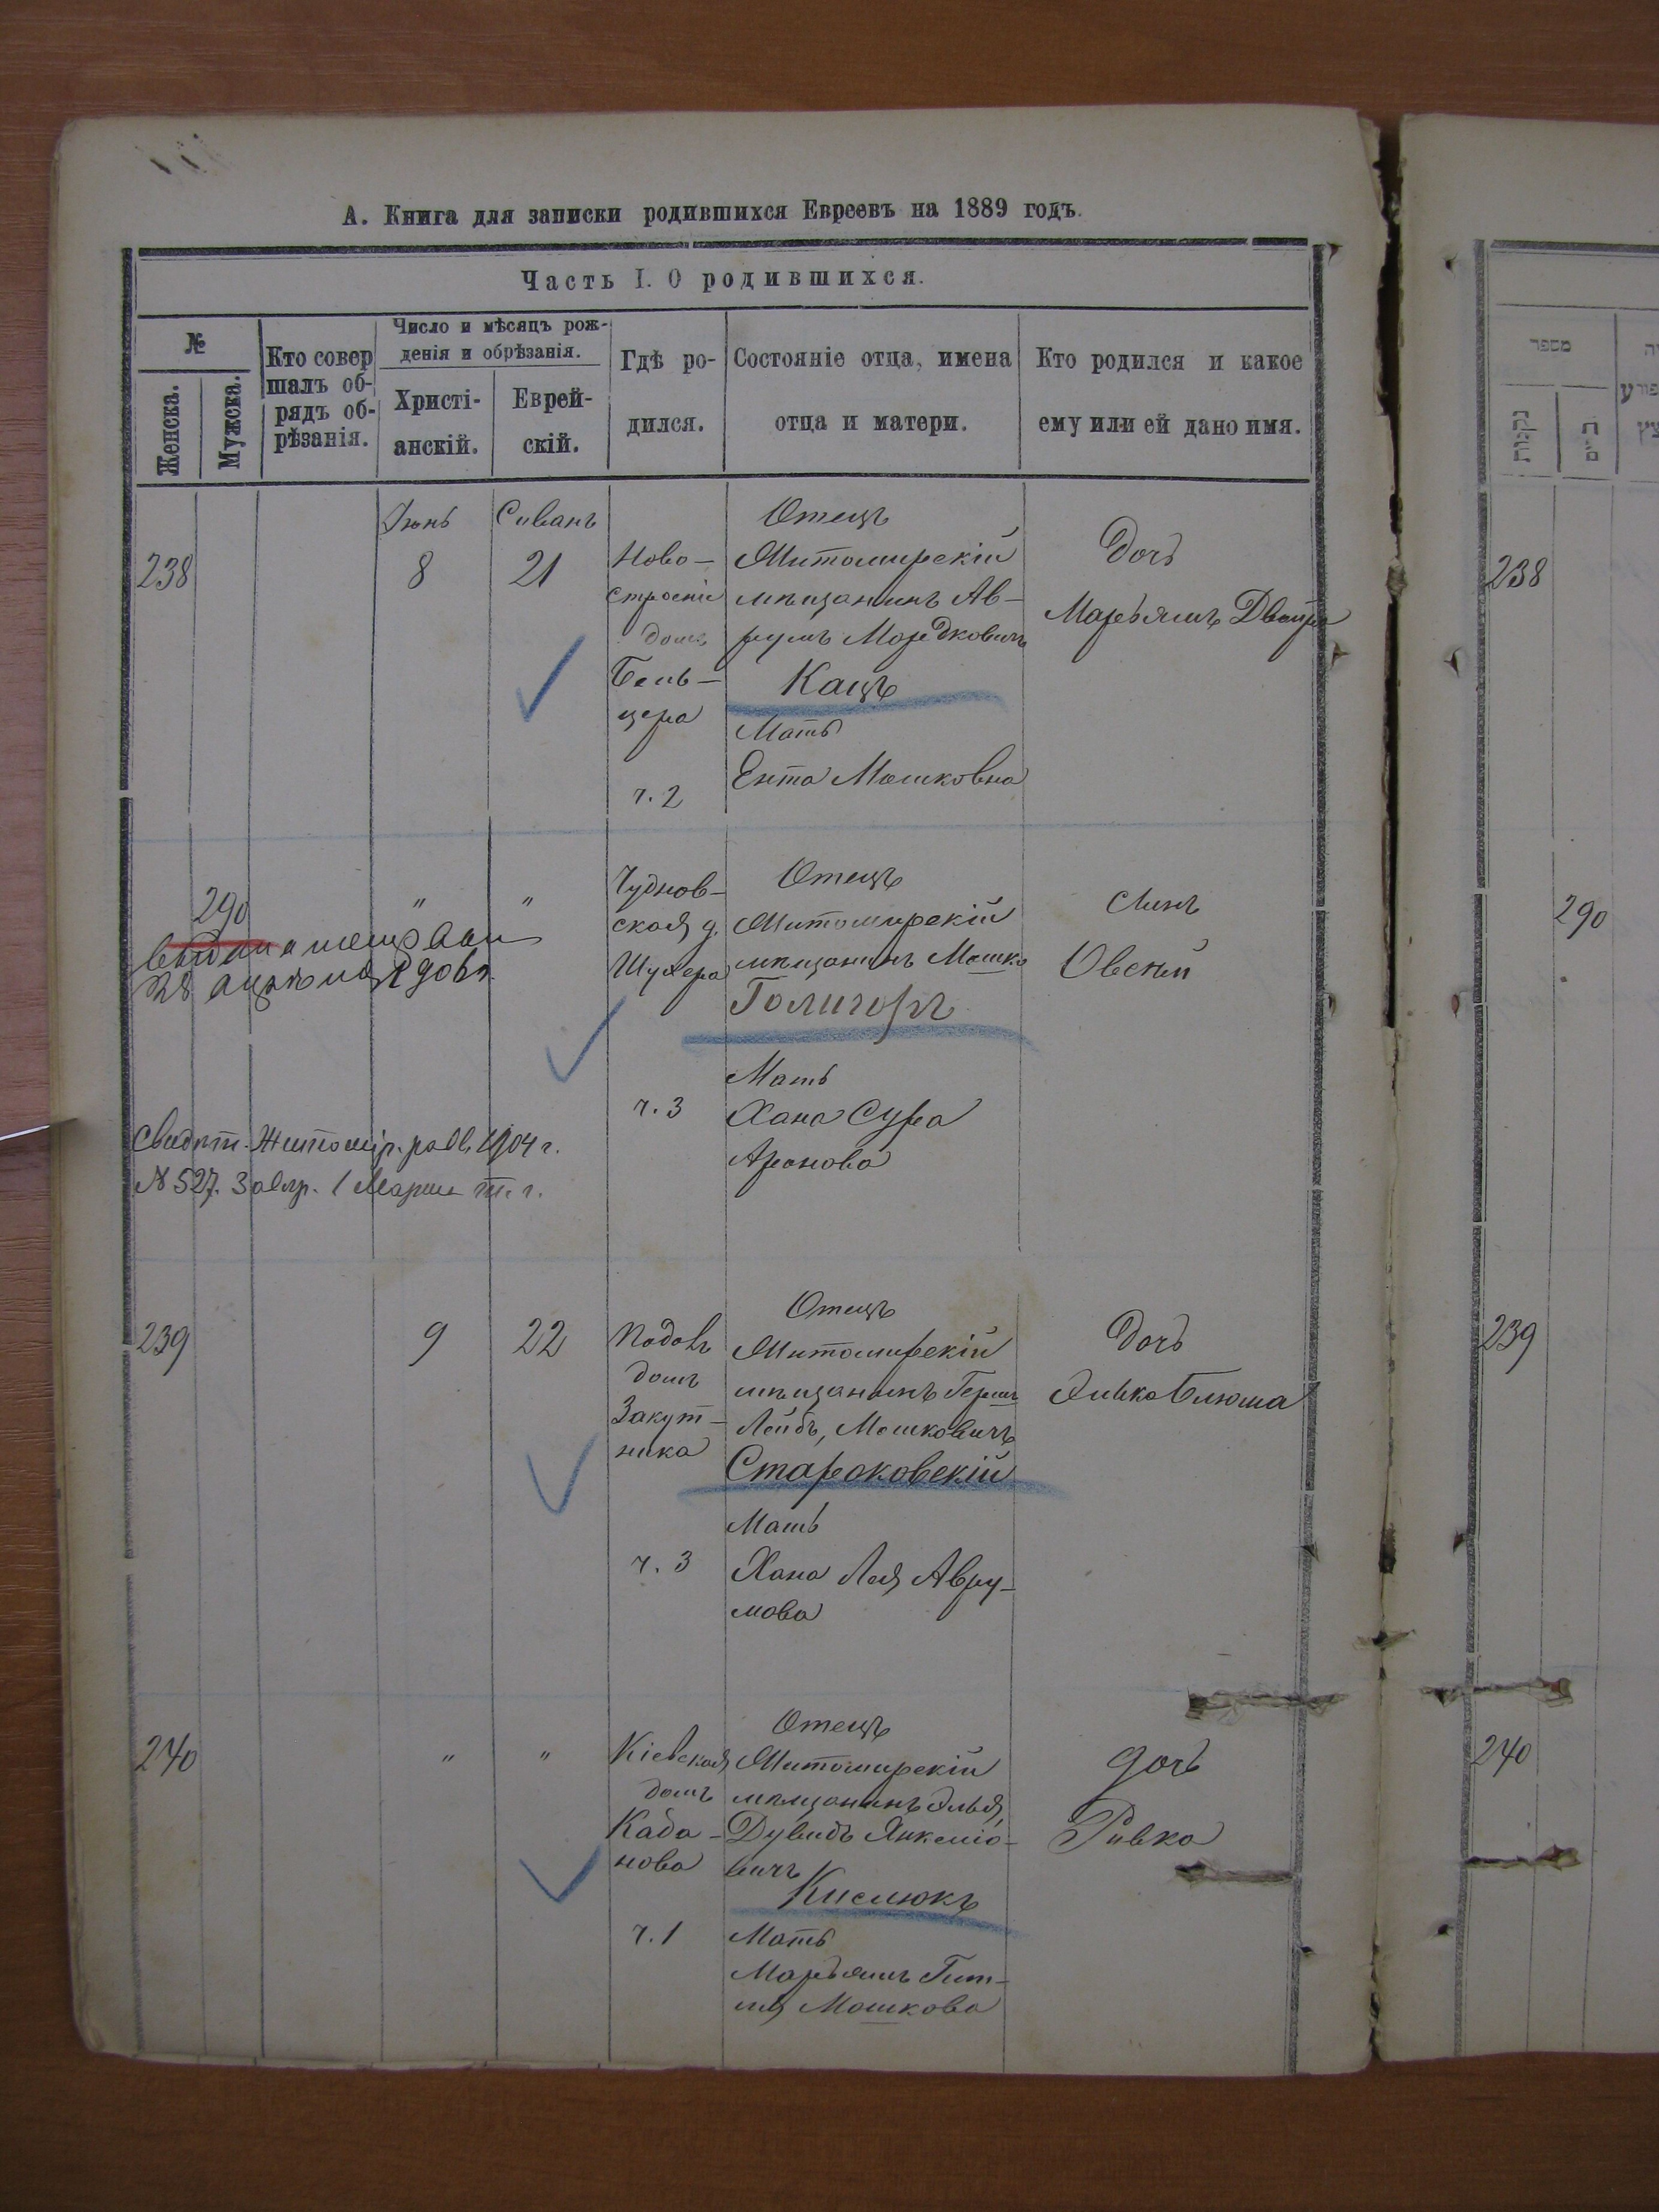 А. Книга для записки родившихся Евреевъ на 1889 годъ.
Часть I. О родившихся.
№
Женска.
Мужска.
Кто совер
шалъ об-
рядъ об-
рѣзанія.
Число и мѣсяцъ рож-
денія и обрѣзанія.
Христі-
анскій.
Еврей-
скій.
Гдѣ ро-
дился.
Состояніе отца, имена
отца и матери.
Кто родился и какое
ему или ей дано имя.
238
Іюнь
8
Сиванъ
21
Ново-
строеніе
домъ
Бель-
цера
ч. 2
Отецъ
Житомирскій
мѣщанинъ Ав-
румъ Мордковичъ
Кацъ
Мать
Ента Мошковна
Дочь
Марьямъ Двойра
290
" "
28
Чуднов-
ская д.
ч. 3
Отецъ
Житомирскій
мѣщанинъ Мошко
Голигоръ
Мать
Хана Сура
Аронова
Сынъ
Овсѣй
Свидѣт. Житомір. равв. 1904 г.
№ 527. 1 Марта т. г.
239
9
22
домъ
Закут-
ника
ч. 3
Отецъ
Житомирскій
мѣщанинъ Герш
Лейбъ, Мошковичъ
Староковскій
Мать
Хана Лея Авру-
мова
Дочь
Блюма
240
" "
Кіевская
домъ
Каба-
нова
ч. 1
Отецъ
Житомирскій
мѣщанинъ Элья
Дувидъ Янкеліо-
вичъ
Кислюкъ
Мать
Марьямъ Гит-
ля Мошкова
дочь
Ривка
מספר
נקבות
238
290
239
240